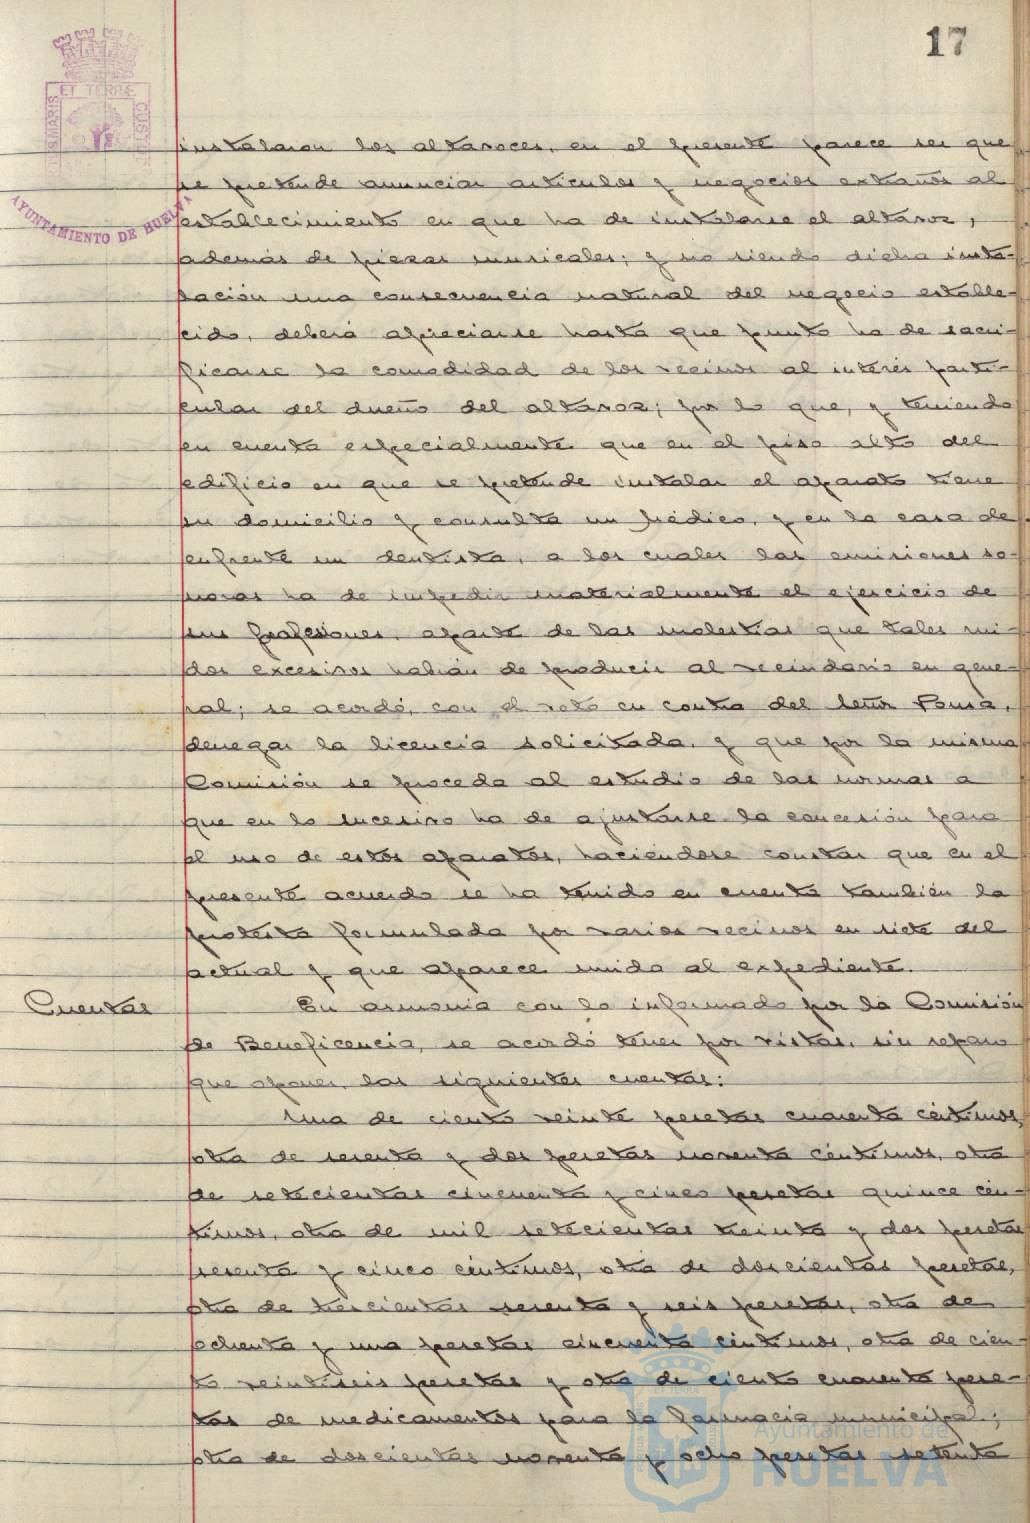 17
ET TERRÆ
CUSTOD
AYUNTAMIENTO DE HUELVA
instalaron los altavoces, en el presente parece ser que
se pretende anunciar artículos y negocios extraños al
establecimiento en que ha de instalarse el altavoz,
además de piezas musicales; y no siendo dicha insta-
lación una consecuencia natural del negocio estable-
cido, deberá apreciarse hasta que punto ha de sacri-
ficarse la comodidad de los vecinos al interés parti-
cular del dueño del altavoz; por lo que, y teniendo
en cuenta especialmente que en el piso alto del
edificio en que se pretende instalar el aparato tiene
su domicilio y consulta un Médico, y en la casa de
enfrente un dentista, a los cuales las emisiones so-
noras ha de impedir materialmente el ejercicio de
sus profesiones, aparte de las molestias que tales rui-
dos excesivos habrán de producir al vecindario en gene-
ral; se acordó, con el voto en contra del Señor Ponsa,
denegar la licencia solicitada, y que por la misma
Comisión se proceda al estudio de las normas a
que en lo sucesivo ha de ajustarse la concesión para
el uso de estos aparatos, haciéndose constar que en el
presente acuerdo se ha tenido en cuenta también la
protesta formulada por varios vecinos en siete del
actual y que aparece unida al expediente.
Cuentas
En armonía con lo informado por la Comisión
de Beneficencia, se acordó tener por vistas, sin reparo
que oponer, las siguientes cuentas:
Una de ciento veinte pesetas cuarenta céntimos,
otra de sesenta y dos pesetas noventa céntimos, otra
de setecientas cincuenta y cinco pesetas quince cén-
timos, otra de mil setecientas treinta y dos pesetas
sesenta y cinco céntimos, otra de doscientas pesetas,
otra de trescientas sesenta y seis pesetas, otra de
ochenta y una pesetas cincuenta céntimos, otra de cien-
to veintiseis pesetas y otra de ciento cuarenta pese-
tas de medicamentos para la farmacia municipal;
otra de doscientas noventa y ocho pesetas setenta
Ayuntamiento de
HUELVA